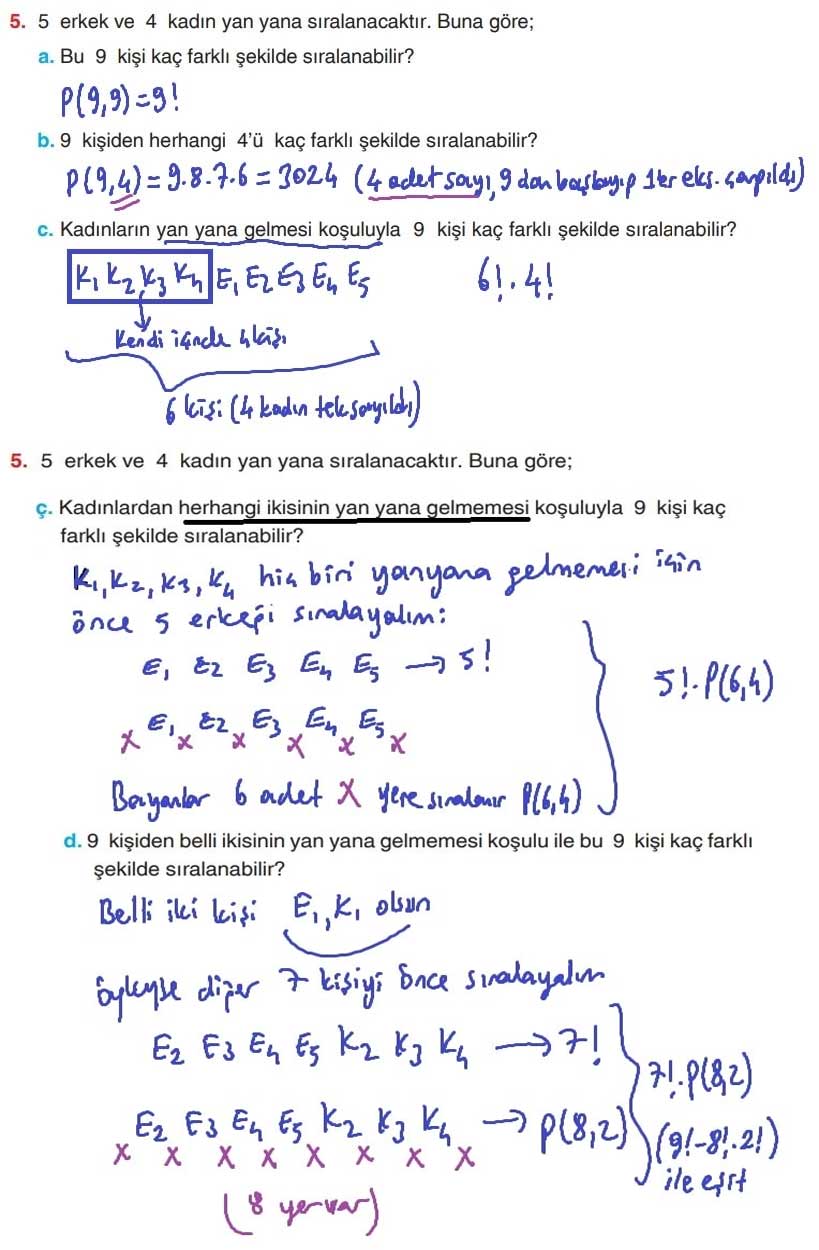 5. 5 erkek ve 4 kadın yan yana sıralanacaktır. Buna göre;
a. Bu 9 kişi kaç farklı şekilde sıralanabilir?
P(9,9)=9!
b. 9 kişiden herhangi 4'ü kaç farklı şekilde sıralanabilir?
P(9,4)=9.8.7.6=3024 (4 adet sayı, 9 dan başlayıp 1er eks. çarpıldı)
c. Kadınların yan yana gelmesi koşuluyla 9 kişi kaç farklı şekilde sıralanabilir?
K1 K2 K3 K4 E1 E2 E3 E4 E5 6!.4!
Kendi içinde 4 kişi
6 kişi (4 kadın tek sayıldı)
5. 5 erkek ve 4 kadın yan yana sıralanacaktır. Buna göre;
ç. Kadınlardan herhangi ikisinin yan yana gelmemesi koşuluyla 9 kişi kaç
farklı şekilde sıralanabilir?
K1, K2, K3, K4 hiç biri yanyana gelmemesi için
önce 5 erkeği sıralayalım:
E1 E2 E3 E4 E5 → 5!
5!.P(6,4)
x E1 x E2 x E3 x E4 x E5 x
Bayanlar 6 adet x yere sıralanır P(6,4)
d. 9 kişiden belli ikisinin yan yana gelmemesi koşulu ile bu 9 kişi kaç farklı
şekilde sıralanabilir?
Belli iki kişi E1, K1 olsun
öyleyse diğer 7 kişiyi önce sıralayalım
E2 E3 E4 E5 K2 K3 K4 → 7!
7!.P(8,2)
x E2 x E3 x E4 x E5 x K2 x K3 x K4 x → P(8,2)
(9!-8!.2!)
ile eşit
(8 yer var)